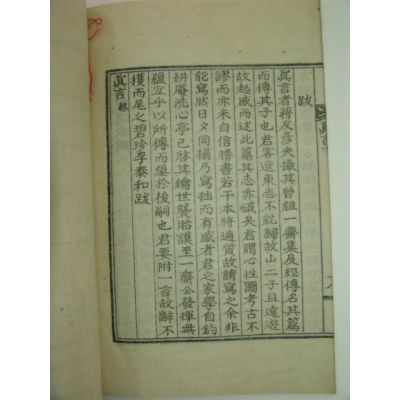 跋
眞言者蔣友彦夫懾其曾祖一齋集及經傳名其篇
而傳其子也君客遼東忠不就歸故山二子且遠遊
故起感而述此其志亦慽矣君謂心性圖考古不
謬而亦未自信謄書若干本將通質故請寫之余非
能寫然日夕同攝乃寫拙而有感者君之家學自鈞
耕庵洗心亭已啓其鑰世襲貽謨至一齋公發揮無
蘊宜乎以所傳而望於後嗣也君要附一言故辭不
獲而尾之碧珍李泰和跋
眞言 終